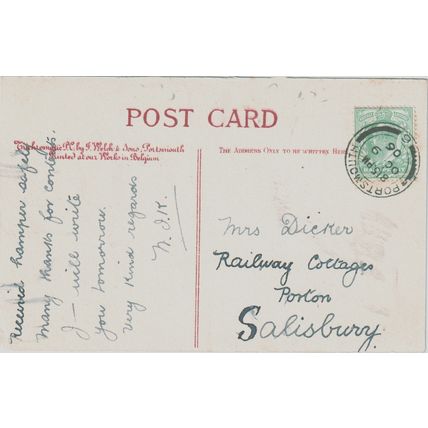 POST CARD
Trichromatic P.C. by F. Welch & Sons, Portsmouth
Printed at our Works in Belgium
THE ADDRESS ONLY TO BE WRITTEN HERE
Received hamper safely
many thanks for contents.
I will write
you tomorrow.
very kind regards
N.J.K.
Mrs Dicker
Railway Cottages
Porton
Salisbury
PORTSMOUTH
06